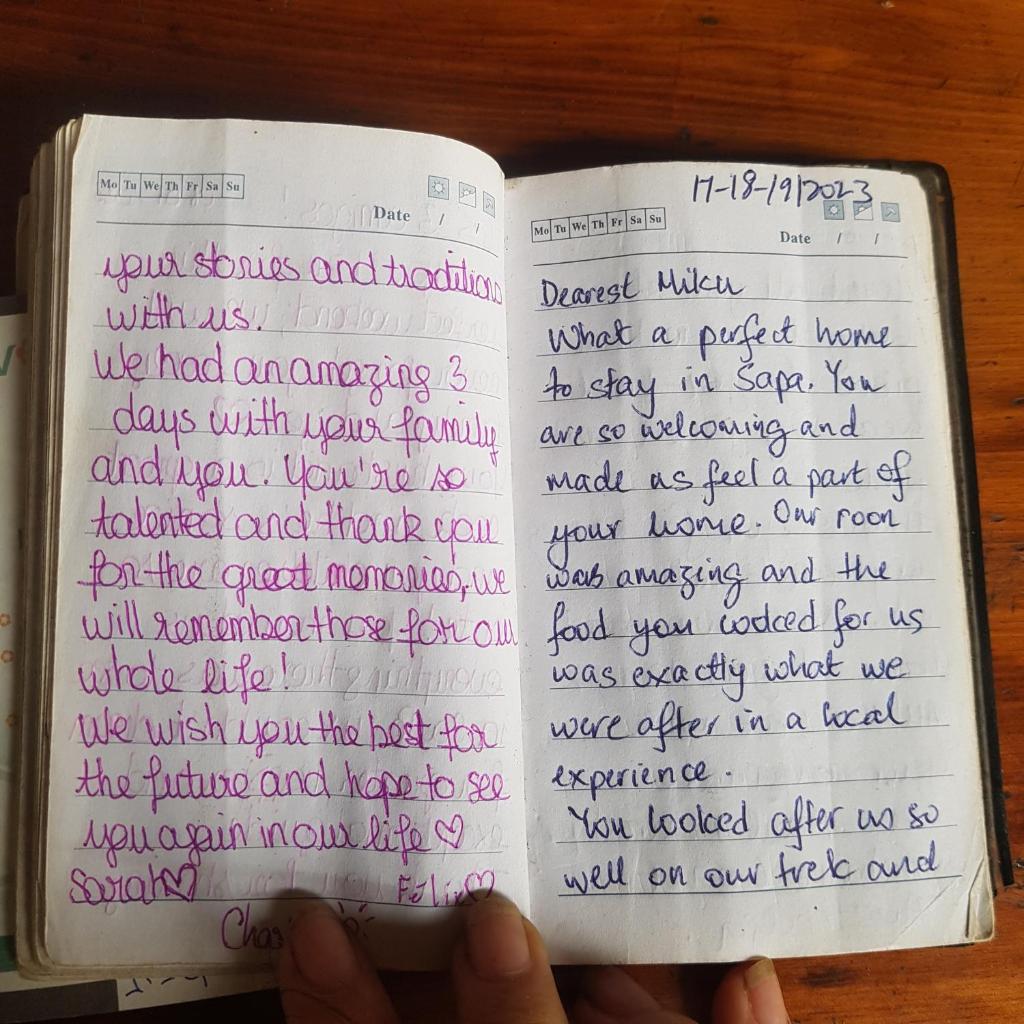 Mo Tu We Th Fr Sa Su
Date / /
your stories and traditions
with us.
We had an amazing 3
days with your family
and you. You're so
talented and thank you
for the great memories, we
will remember those for our
whole life!
We wish you the best for
the future and hope to see
you again in our life ♡
Sarah♡ Felix♡
17-18-19/2023
Mo Tu We Th Fr Sa Su
Date / /
Dearest Miku
What a perfect home
to stay in Sapa. You
are so welcoming and
made us feel a part of
your home. Our room
was amazing and the
food you cooked for us
was exactly what we
were after in a local
experience.
You looked after us so
well on our trek and